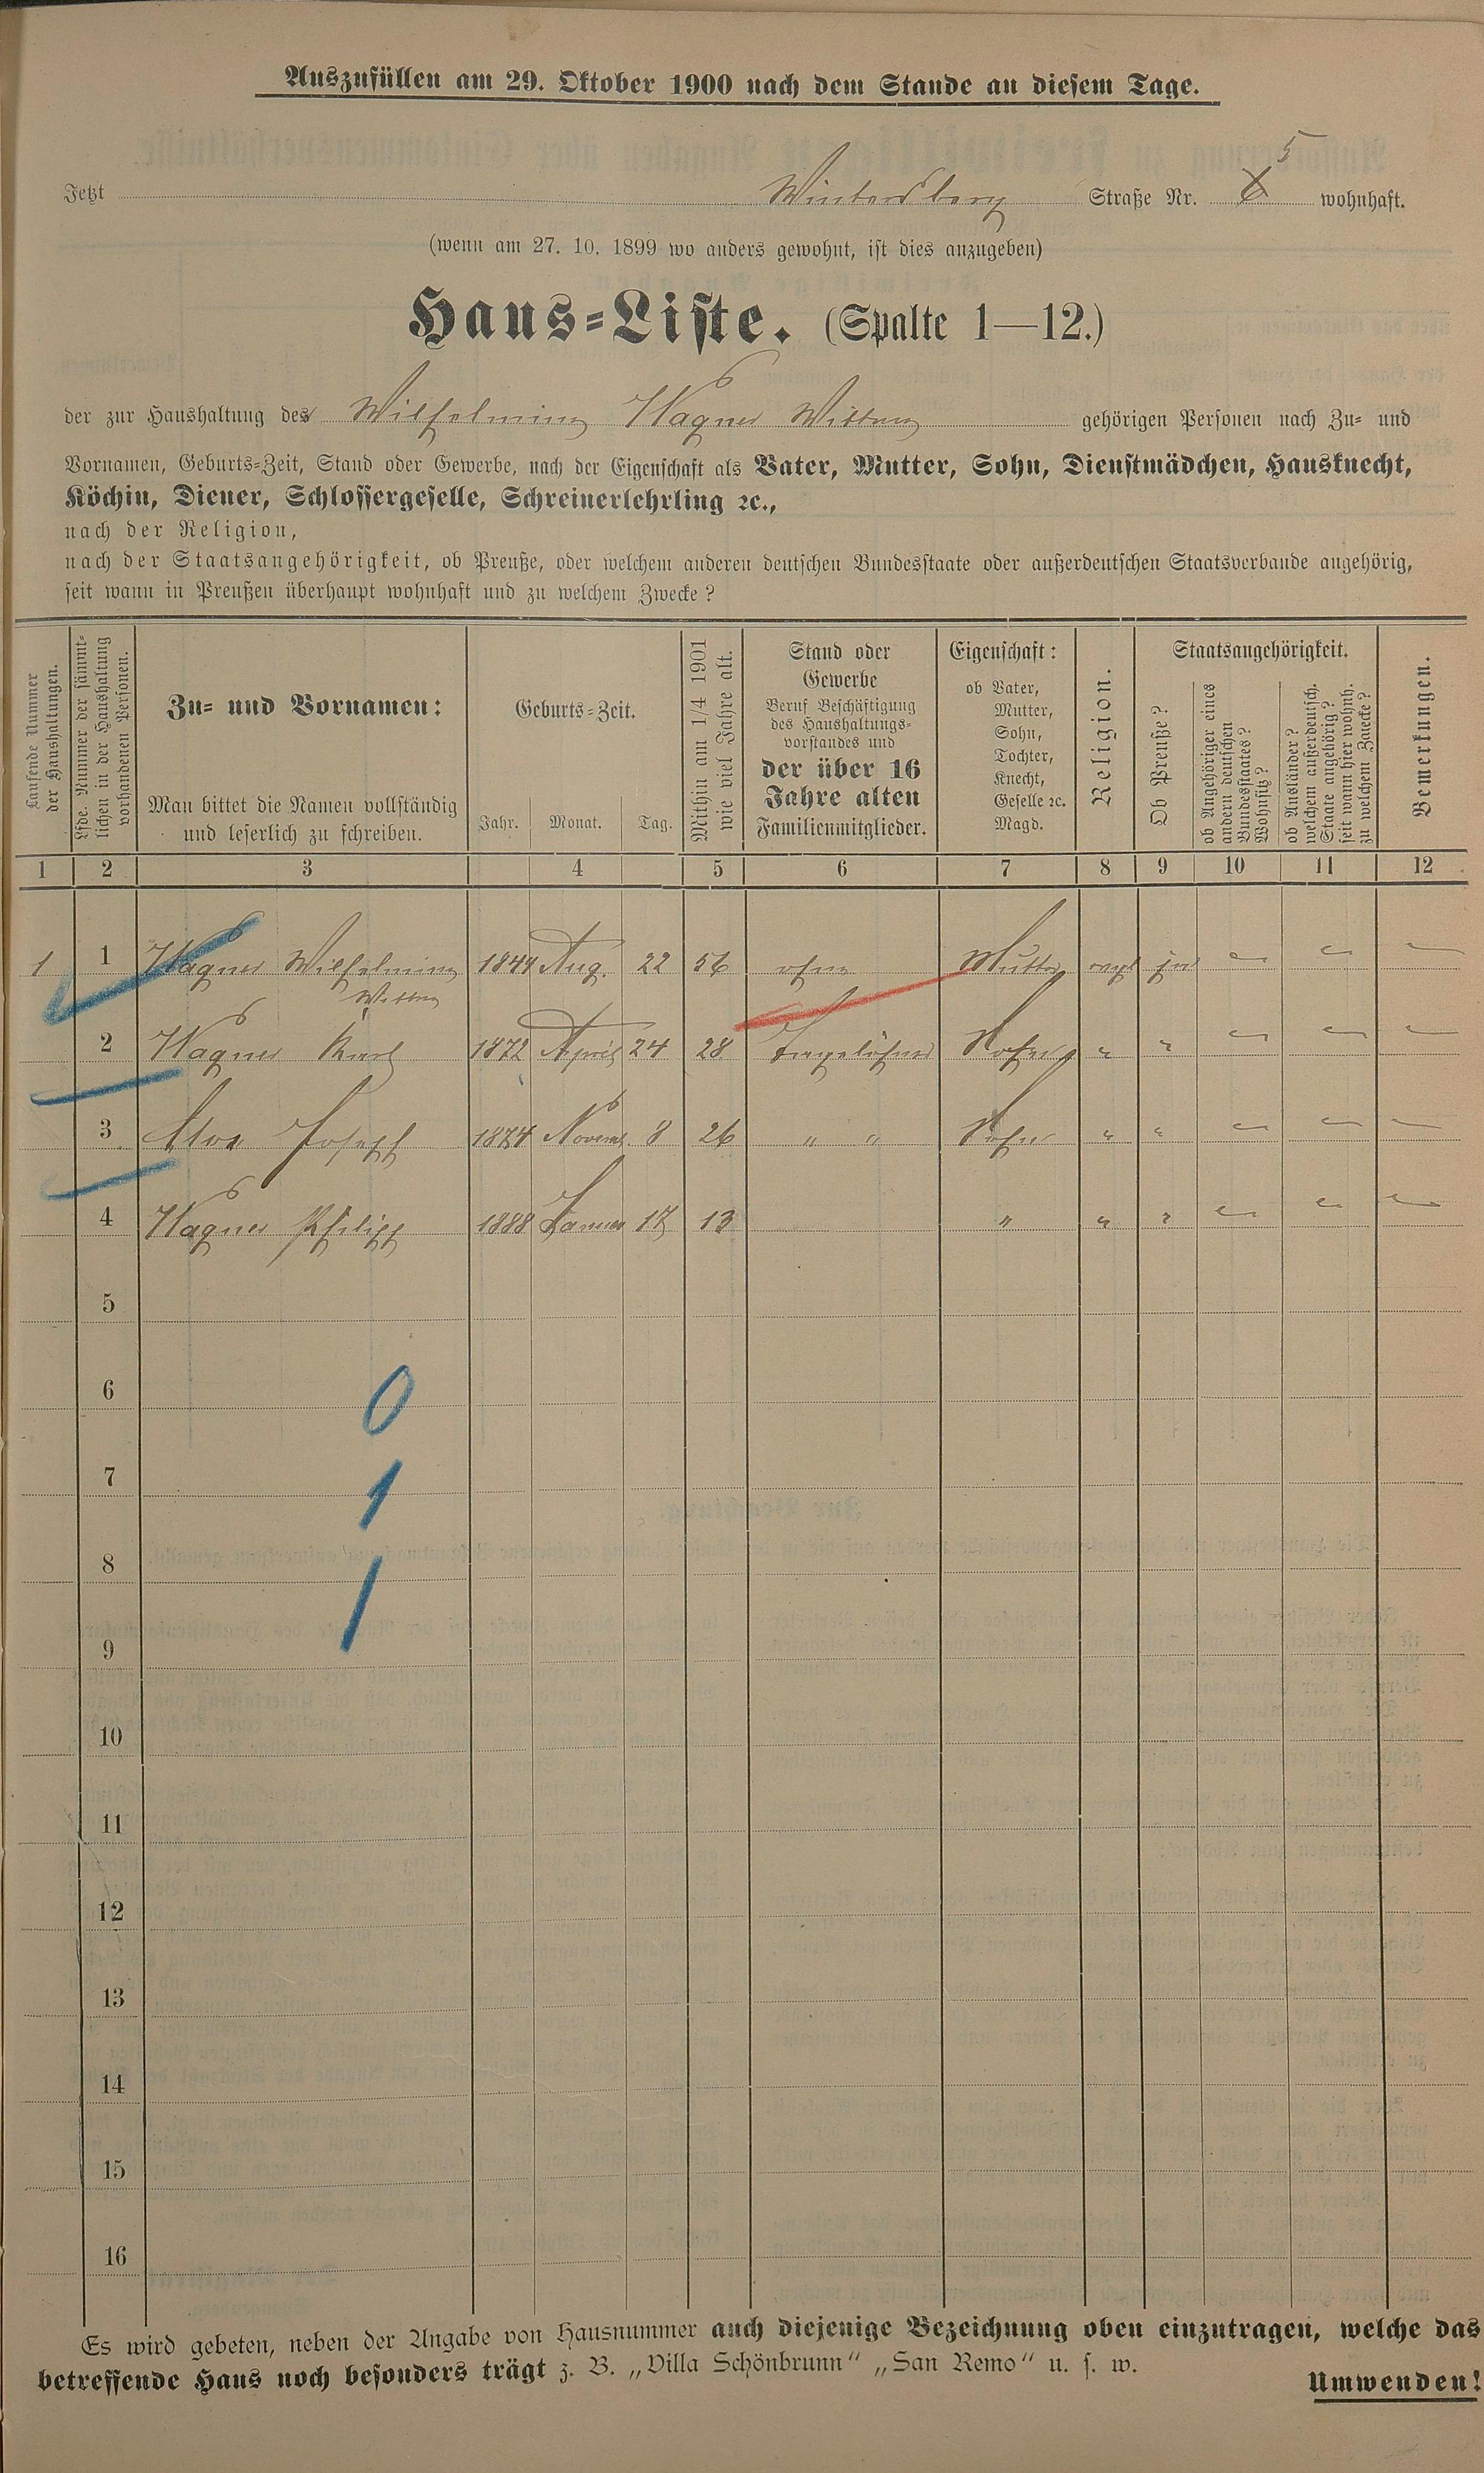 Auszufüllen am 29. Oktober 1900 nach dem Stande an diesem Tage.
5
Jetzt Wintersberg Straße Nr. 6 wohnhaft.
(wenn am 27. 10. 1899 wo anders gewohnt, ist dies anzugeben)
Haus=Liste. (Spalte 1—12.)
der zur Haushaltung des Wilhelmine Wagner Wittwe gehörigen Personen nach Zu= und
Vornamen, Geburts=Zeit, Stand oder Gewerbe, nach der Eigenschaft als Vater, Mutter, Sohn, Dienstmädchen, Hausknecht,
Köchin, Diener, Schlossergeselle, Schreinerlehrling ꝛc.,
nach der Religion,
nach der Staatsangehörigkeit, ob Preuße, oder welchem anderen deutschen Bundesstaate oder außerdeutschen Staatsverbande angehörig,
seit wann in Preußen überhaupt wohnhaft und zu welchem Zwecke?
Laufende Nummer
der Haushaltungen.
Lfde. Nummer der sämmt=
lichen in der Haushaltung
vorhandenen Personen.
Zu= und Vornamen:
Man bittet die Namen vollständig
und leserlich zu schreiben.
Geburts=Zeit.
Jahr. Monat. Tag.
Mithin am 1/4 1901
wie viel Jahre alt.
Stand oder
Gewerbe
Beruf Beschäftigung
des Haushaltungs=
vorstandes und
der über 16
Jahre alten
Familienmitglieder.
Eigenschaft:
ob Vater,
Mutter,
Sohn,
Tochter,
Knecht,
Geselle ꝛc.
Magd.
Religion.
Staatsangehörigkeit.
Ob Preuße?
ob Angehöriger eines
andern deutschen
Bundesstaates?
Wohnsitz?
ob Ausländer?
welchem außerdeutsch.
Staate angehörig?
seit wann hier wohnh.
zu welchem Zwecke?
Bemerkungen.
1 2 3 4 5 6 7 8 9 10 11 12
1 1 Wagner Wilhelmine 1844 Aug. 22 56 ohne Mutter evgl ja — — —
Wittwe
2 Wagner Karl 1872 April 24 28 Tagelöhner Sohn " " — — —
3 Joseph 1874 Novemb. 8 26 " " Sohn " " — — —
4 Wagner Philipp 1888 Januar 17 13 " " " — — —
5
6 0
7 1
8
9 1
10
11
12
13
14
15
16
Es wird gebeten, neben der Angabe von Hausnummer auch diejenige Bezeichnung oben einzutragen, welche das
betreffende Haus noch besonders trägt z. B. „Villa Schönbrunn“ „San Remo“ u. s. w.
Umwenden!